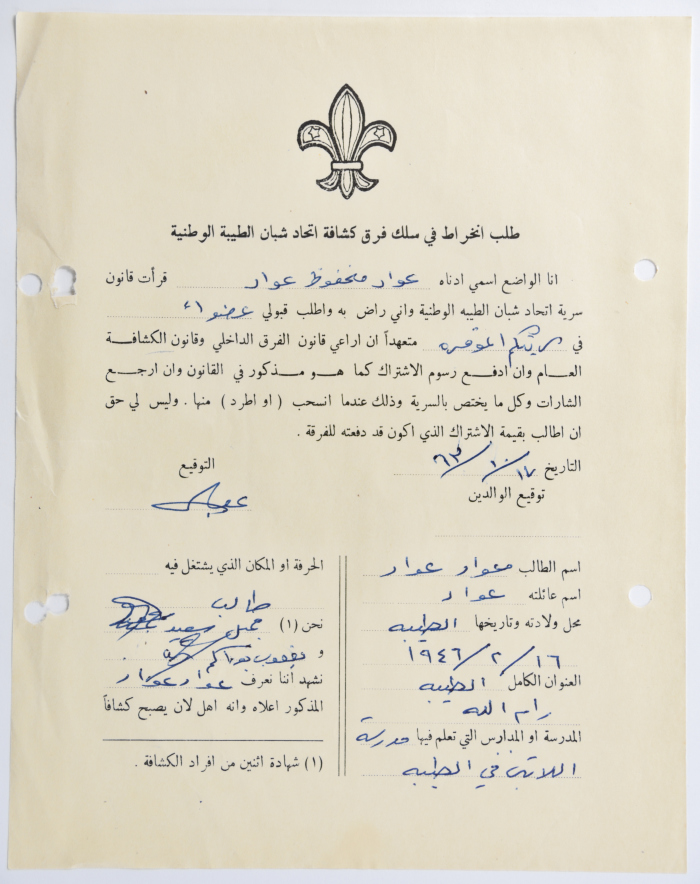 طلب انخراط في سلك فرق كشافة اتحاد شبان الطيبة الوطنية
انا الواضع اسمي ادناه عواد محفوظ عواد قرأت قانون
سرية اتحاد شبان الطيبه الوطنية واني راض به واطلب قبولي عضواً
في سريتكم الموقره متعهداً ان اراعي قانون الفرق الداخلي وقانون الكشافة
العام وان ادفع رسوم الاشتراك كما هو مذكور في القانون وان ارجع
الشارات وكل ما يختص بالسرية وذلك عندما انسحب ( او اطرد ) منها . وليس لي حق
ان اطالب بقيمة الاشتراك الذي اكون قد دفعته للفرقة .
التاريخ ١٧/١٠/٦٣
التوقيع
توقيع الوالدين
اسم الطالب عواد عواد
اسم عائلته عواد
محل ولادته وتاريخها الطيبه
١٦/٢/١٩٤٦
العنوان الكامل الطيبه
رام الله
المدرسة او المدارس التي تعلم فيها مدرسة
اللاتين في الطيبه
الحرفة او المكان الذي يشتغل فيه
طالب
نحن (١) جميل سعيد
و يعقوب
نشهد أننا نعرف عواد عواد
المذكور اعلاه وانه اهل لان يصبح كشافاً
(١) شهادة اثنين من افراد الكشافة .